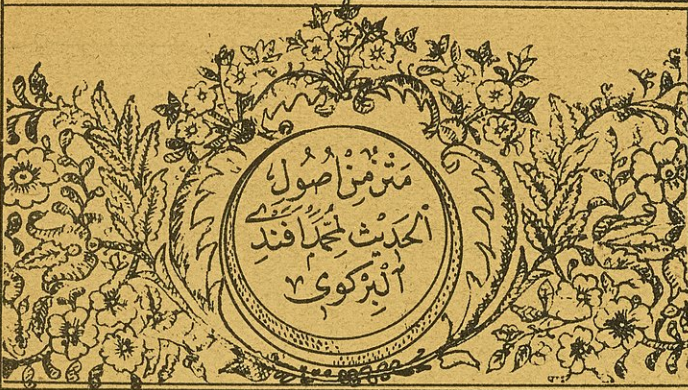 مَتْنٌ مِنْ اُصُولِ
الْحَدِيْثِ لِمُحَمَّدْ اَفَنْدِى
اَلْبِرْكَوِى